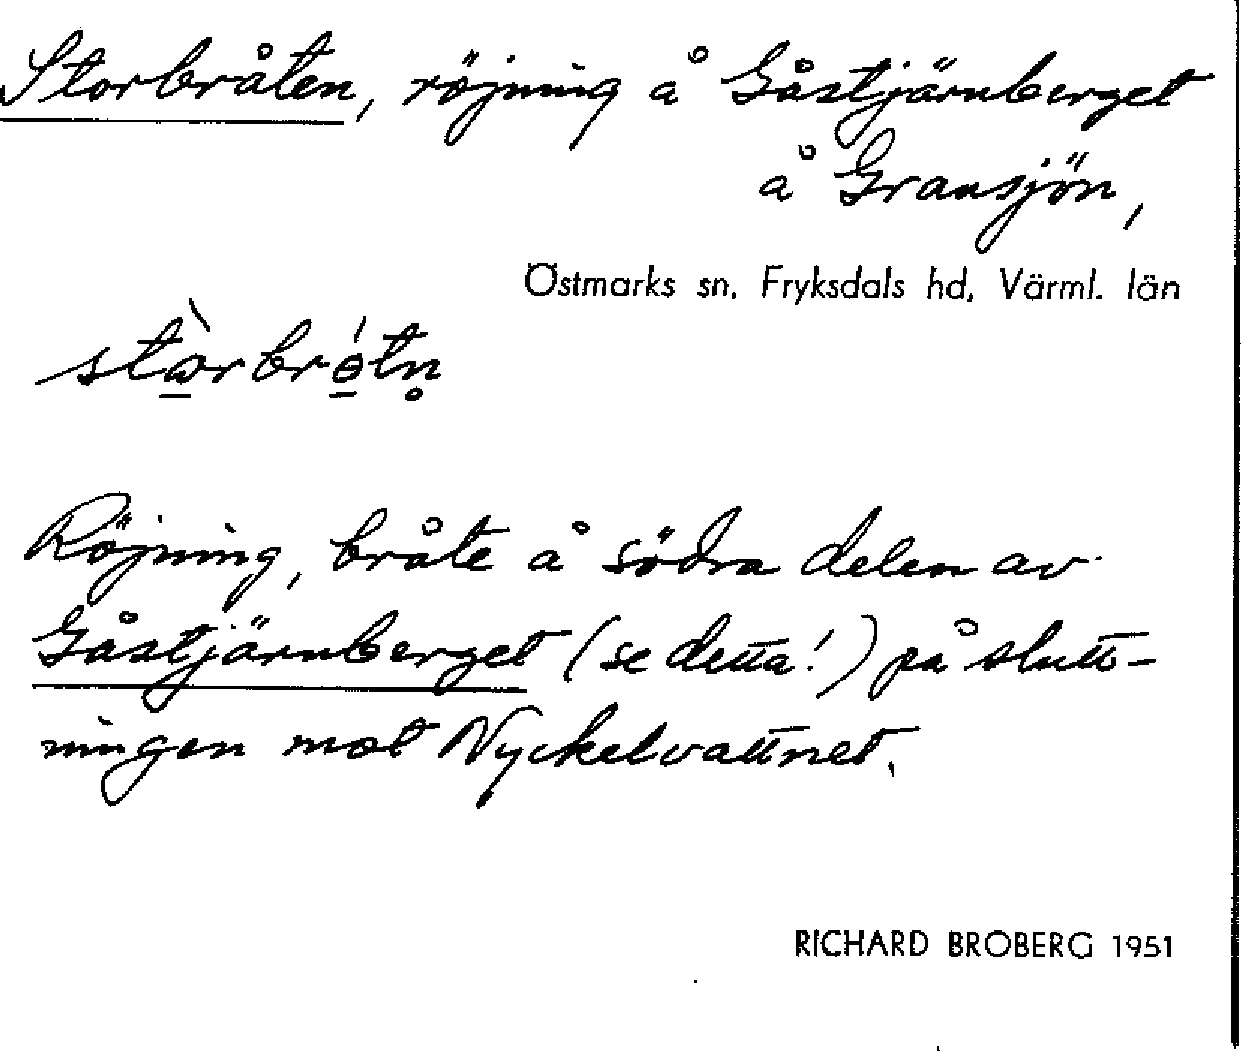 Storbråten, röjning å Gåstjärnberget
å Gransjön,
Östmarks sn, Fryksdals hd, Värml. län
stὼ̲rbrɵ̲́tn̥
Röjning, bråte å södra delen av
Gåstjärnberget (se detta!) på slutt-
ningen mot Nyckelvattnet.
RICHARD BROBERG 1951